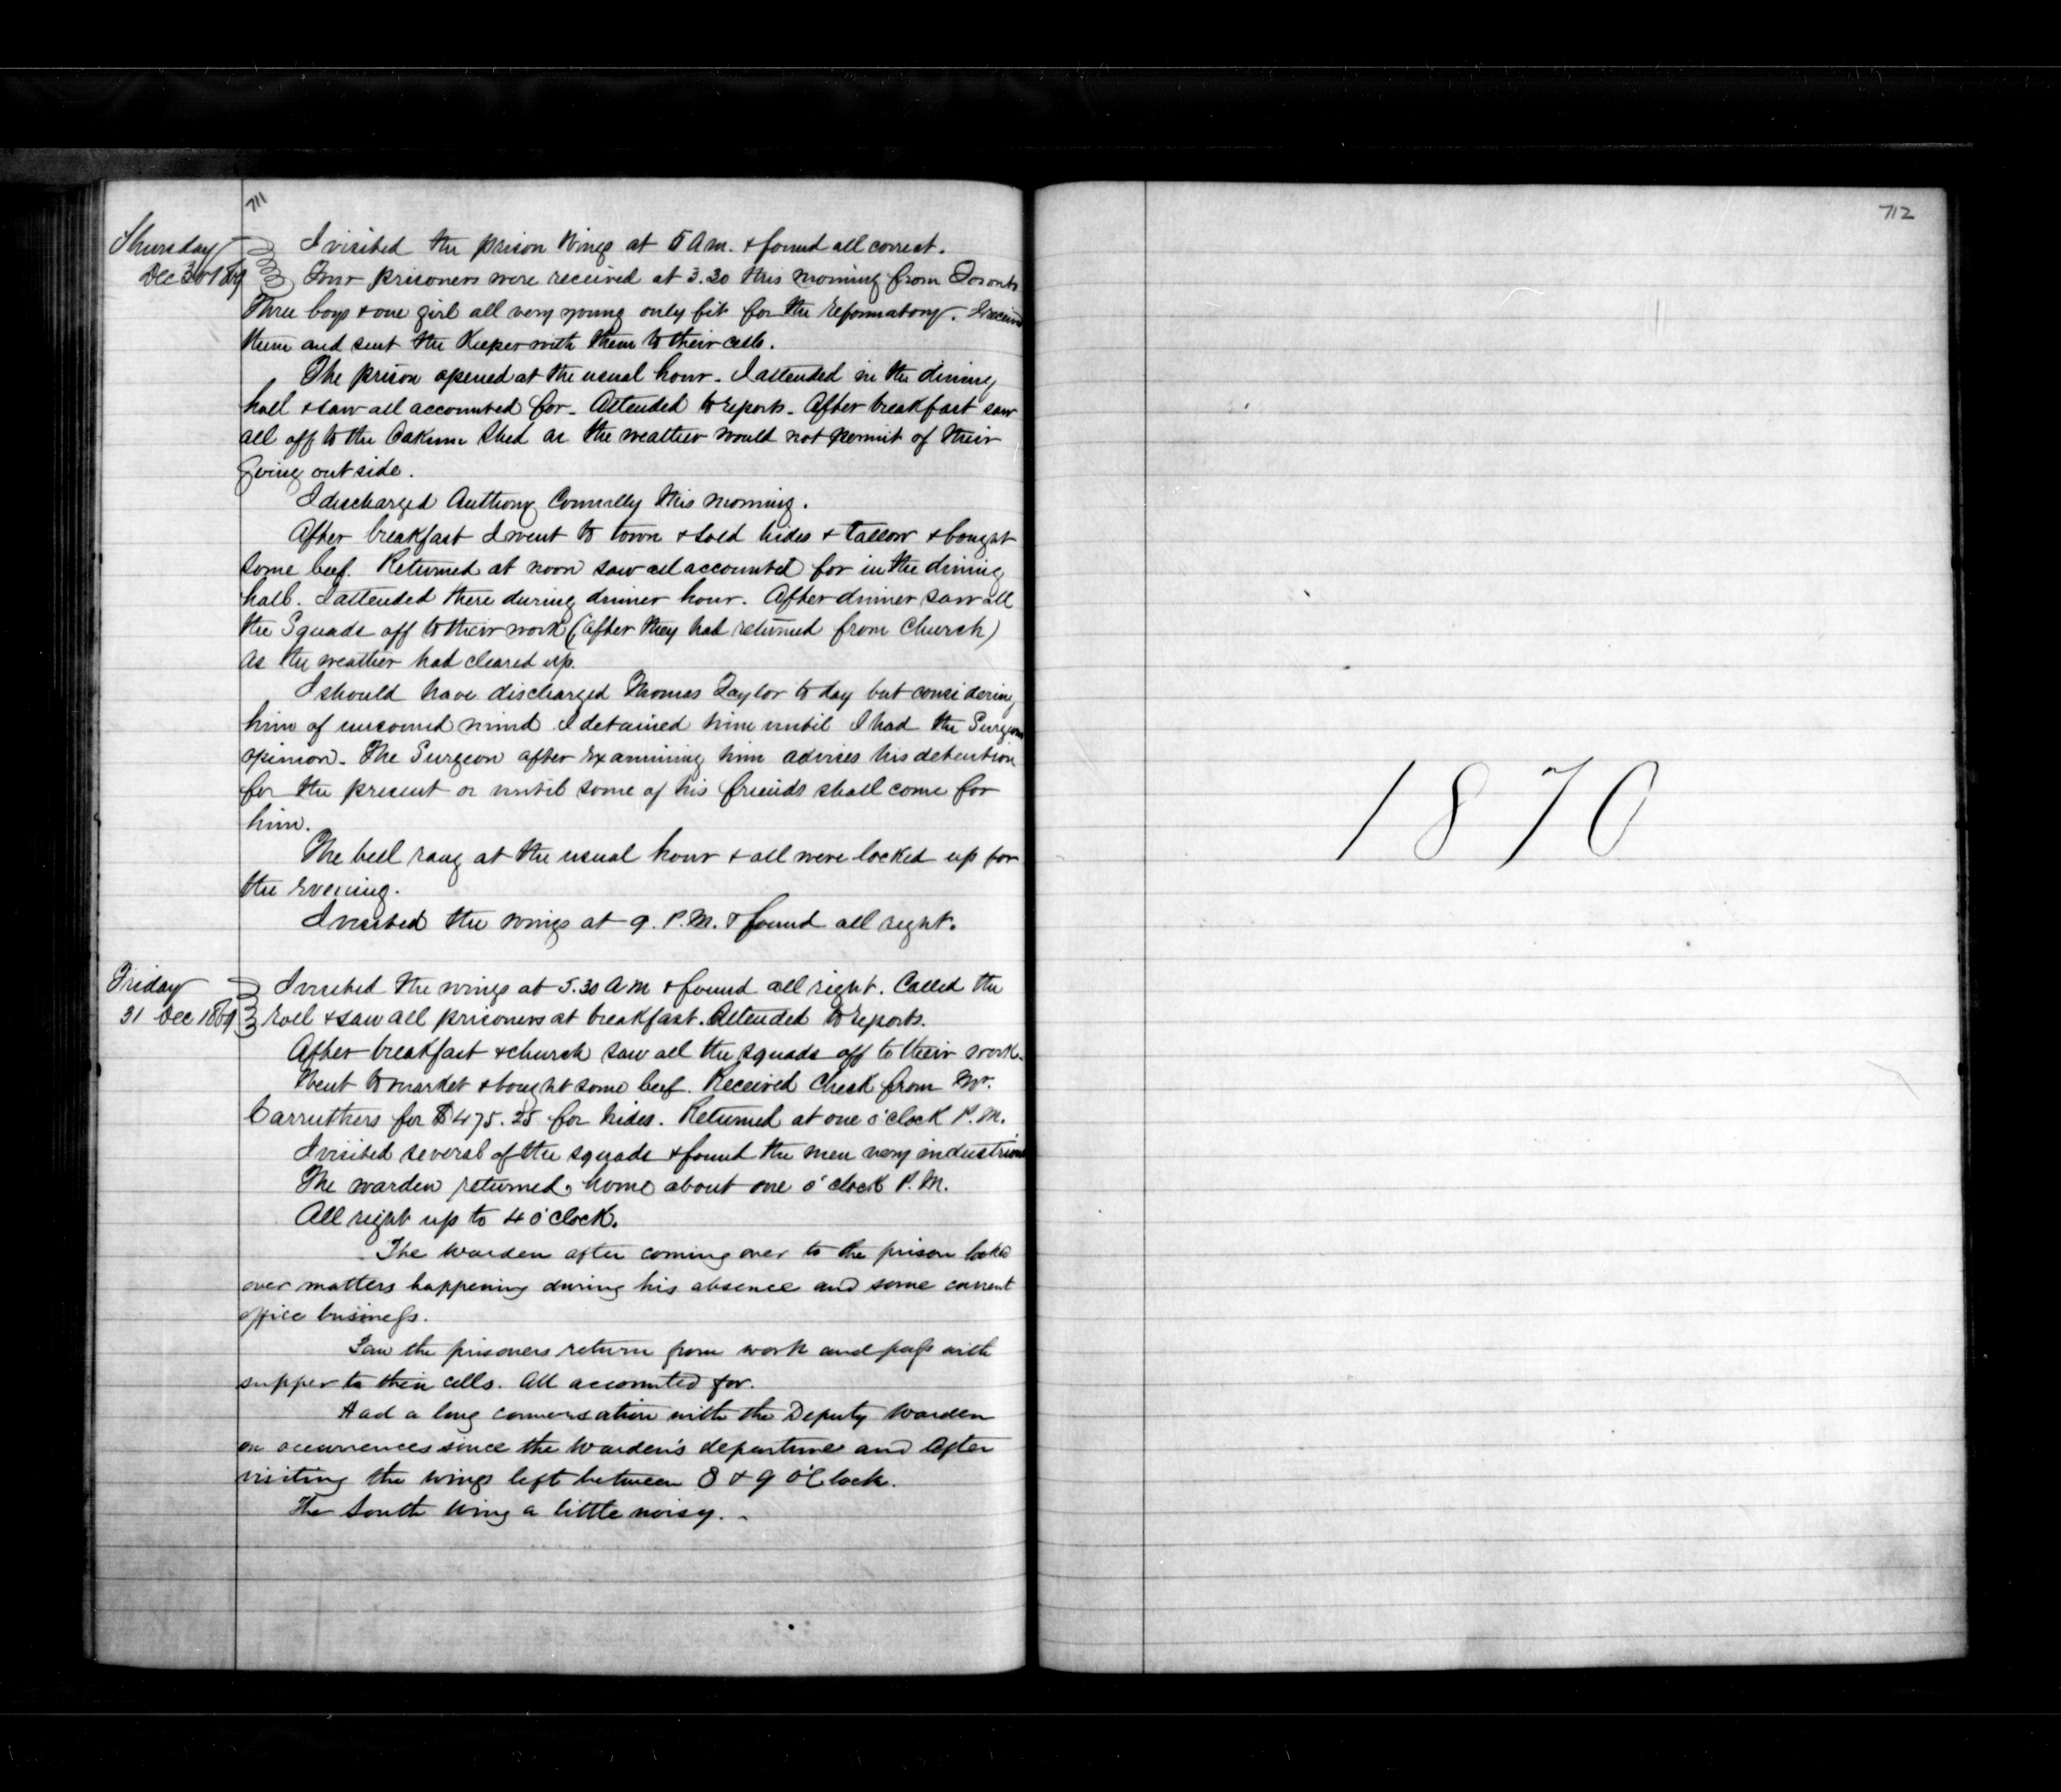 711
Thursday
Dec 30 1869
I visited the prison Wings at 5 A m. & found all correct.
Four prisoners were received at 3.30 this morning from Toronto
Three boys & one girl all very young only fit for the reformatory. I received
them and sent the Keeper with them to their cells.
The prison opened at the usual hour. I attended in the dining
hall & saw all accounted for. Attended to reports. After breakfast saw
all off to the Oakum Shed as the weather would not permit of their
going outside.
I discharged Anthony Connelly this morning.
After breakfast I went to town & sold hides & tallow & bought
some beef. Returned at noon saw all accounted for in the dining
hall. I attended there during dinner hour. After dinner saw all
the Squads off to their work (after they had returned from Church)
as the weather had cleared up.
I should have discharged Thomas Taylor to day but considering
him of unsound mind I detained him until I had the Surgeons
opinion. The Surgeon after examining him advises his detention
for the present or until some of his friends shall come for
him.
The bell rang at the usual hour & all were locked up for
the evening.
I visited the wings at 9. P.M. & found all right.
Friday
31 Dec 1869
I visited the wings at 5.30 A m & found all right. Called the
roll & saw all prisoners at breakfast. Attended to reports.
After breakfast & church saw all the squads off to their work.
Went to market & bought some beef. Received Check from Mr.
Carruthers for $475.25 for hides. Returned at one o'clock P.M.
I visited several of the squads & found the men very industrious
The warden returned home about one o'clock P.M.
All right up to 4 o'clock.
The Warden after coming over to the prison looked
over matters happening during his absence and some current
office business.
Saw the prisoners return from work and pass with
supper to their cells. All accounted for.
Had a long conversation with the Deputy Warden
on occurrences since the Warden's departure and After
visiting the wings left between 8 & 9 O'Clock.
The South Wing a little noisy.
712
1870